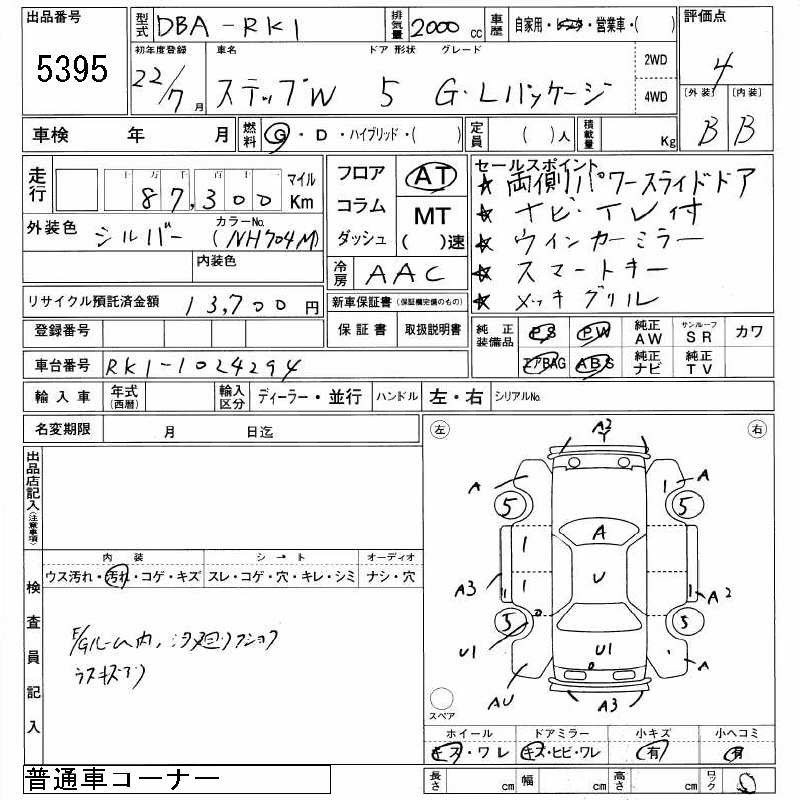 出品番号 5395
型式 DBA-RK1 排気量 2000 cc 車歴 自家用・レンタ・営業車・( ) 評価点 4
初年度登録 22/7月 車名 ステップW ドア 形状 5 グレード G・Lパッケージ 2WD 4WD
〔外装〕 B 〔内装〕 B
車検 年 月 燃料 G・D・ハイブリッド・( ) 定員 ( )人 積載量 Kg
走行 十 万 千 百 十 87,300 マイル Km
フロア コラム ダッシュ AT MT ( )速
セールスポイント
★両側パワースライドドア
★ナビ・TV付
★ウインカーミラー
★スマートキー
★メッキグリル
外装色 シルバー カラーNo. (NH704M)
内装色
冷房 AAC
リサイクル預託済金額 13,700 円
新車保証書 (保証欄完備のもの)
保証書 取扱説明書
登録番号
純正装備品 PS PW 純正AW サンルーフ SR カワ
エアBAG ABS 純正ナビ 純正TV
車台番号 RK1-1024294
輸入車 年式(西暦) 輸入区分 ディーラー・並行 ハンドル 左・右 シリアルNo.
名変期限 月 日迄
出品店記入(注意事項)
左 右
A2
A A
5 5
1 1
A
1 U
1
A3 A2
5 5
U1 U1
AU A
A3
スペア
検査員記入
内装 シート オーディオ
ウス汚れ・汚れ・コゲ・キズ スレ・コゲ・穴・キレ・シミ ナシ・穴
ホイール ドアミラー 小キズ 小ヘコミ
キズ・ワレ キズ・ヒビ・ワレ (有) (有)
普通車コーナー
長さ cm 幅 cm 高さ cm ロック